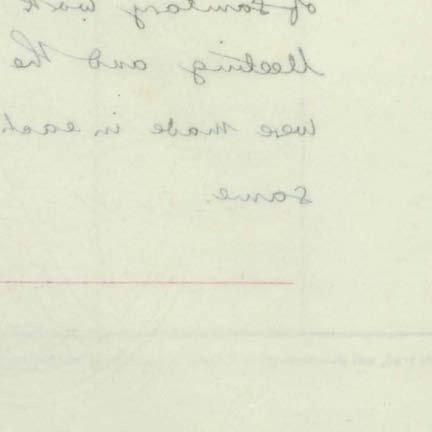 of sanitary work
Meeting and the
were made in each
same.